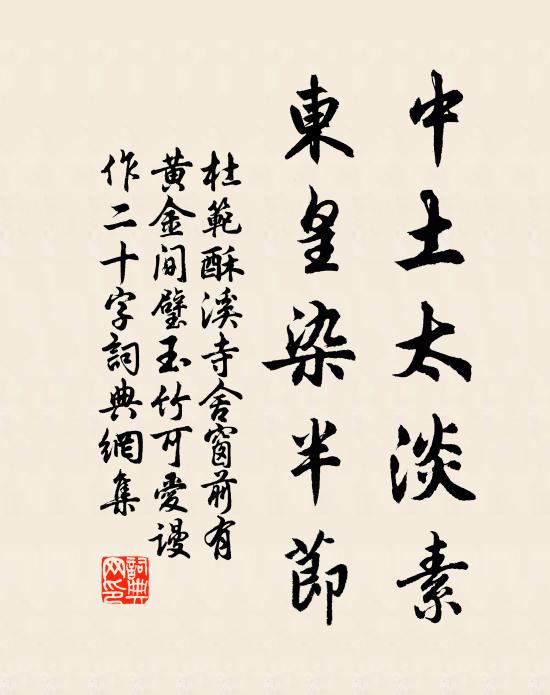 中土太淡素
東皇染半節
杜範酥溪寺舍窗前有
黄金間璧玉竹可愛謾
作二十字詞典網集
詞典
网印